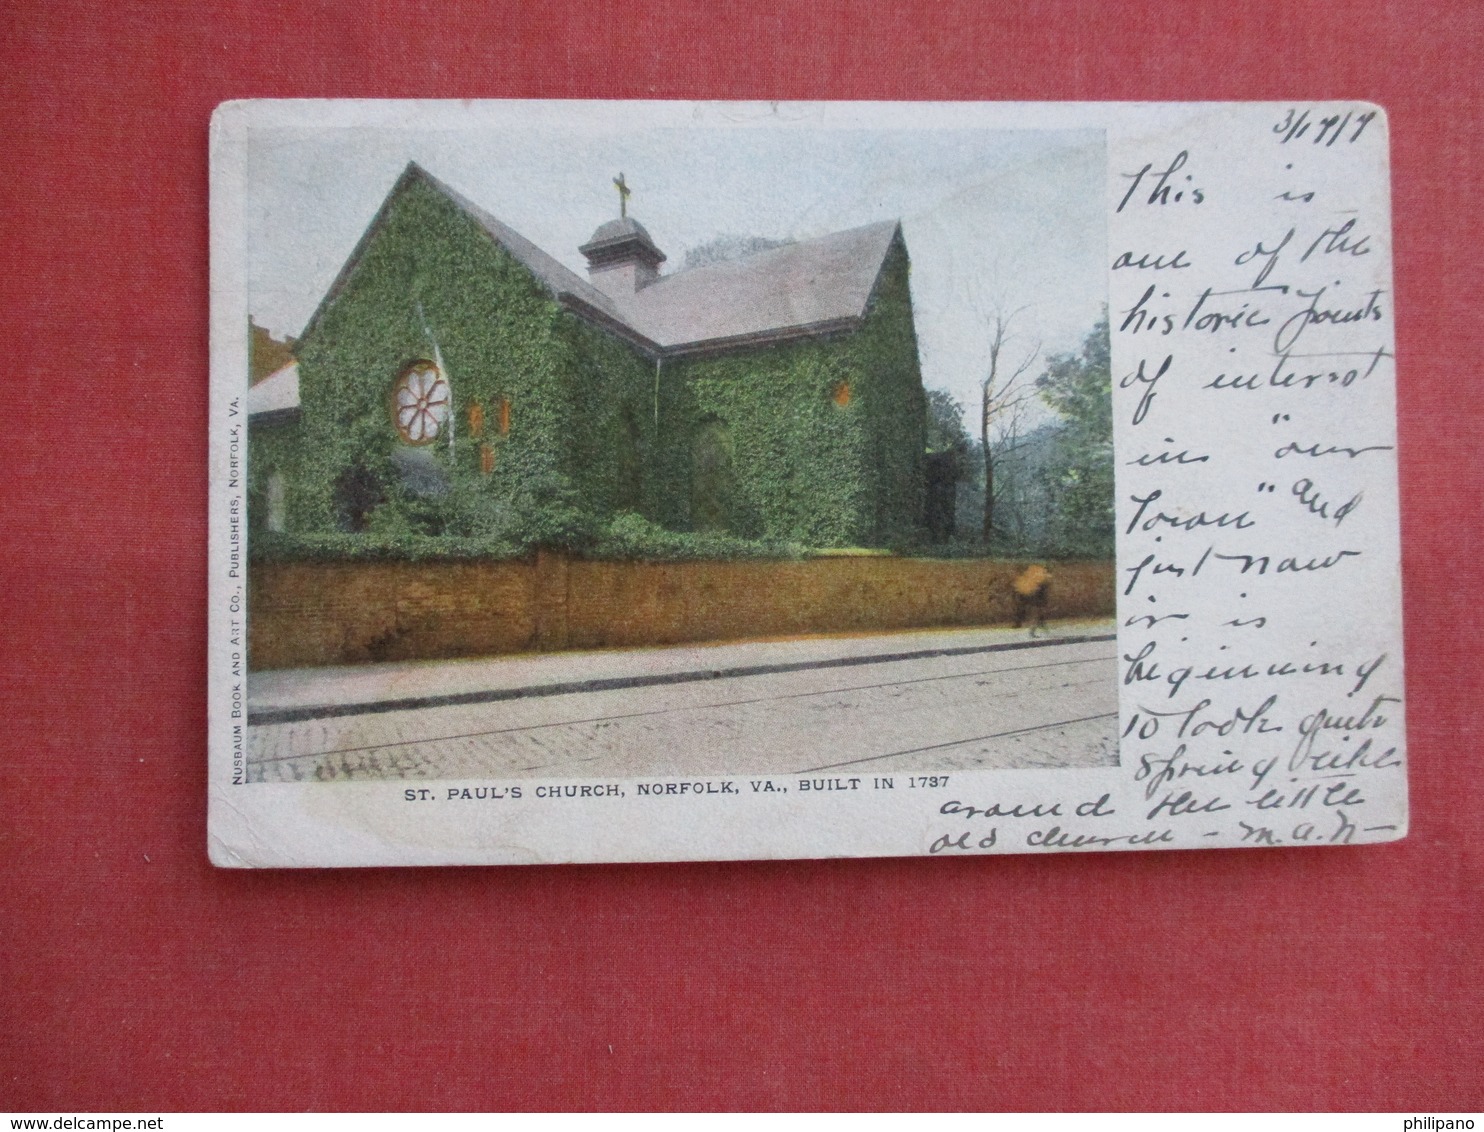 3/17/7
This is
one of the
historic points
of interest
in "our
Town" and
just now
it is
beginning
to look quite
Spring like
around the little
old church - M.A.N-
NUSBAUM BOOK AND ART CO., PUBLISHERS, NORFOLK, VA.
ST. PAUL'S CHURCH, NORFOLK, VA., BUILT IN 1737
www.delcampe.net
philipano